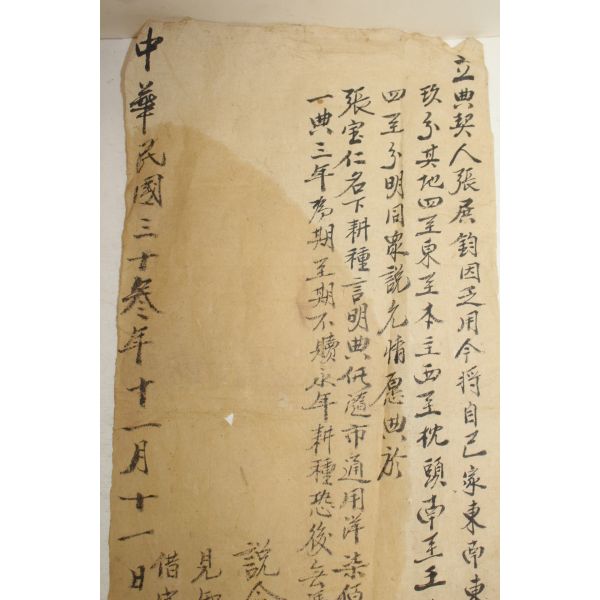 立典契人張展鈞因乏用今將自己家東南東
玖分其地四至東至本主西至枕頭南至王
四至分明同眾說允情愿典於
張宝仁名下耕種言明典價隨市通用洋柒佰
一典三年為期至期不贖永年耕種恐後無
說合
見
借
中華民國三十叁年十一月十一日